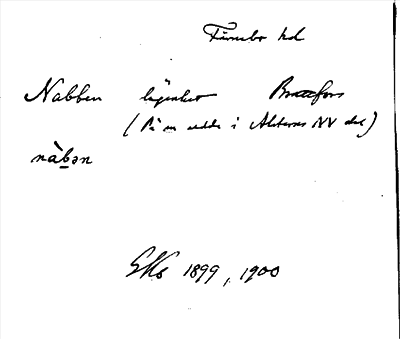 Funbo hd
Nabben lägenhet Brattfors
(På en udde i Alsterns NV del)
nàbən
GKs 1899, 1900